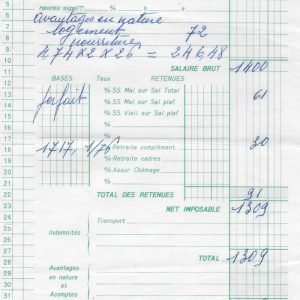 Heures suppl
Avantages en nature
logement 72
nourriture
4,74 X 2 X 26 = 246,48
SALAIRE BRUT 1400
BASES Taux RETENUES
forfait % SS. Mal sur Sal Total 61
% SS. Mal sur Sal plaf
% SS. Vieil sur Sal plaf
1717, 1/76 Retraite complémt. 30
% Retraite cadres
% Assur. Chômage
TOTAL DES RETENUES 91
NET IMPOSABLE 1309
Transport
Indemnités
TOTAL 1309
Avantages
en nature
et
Acomptes